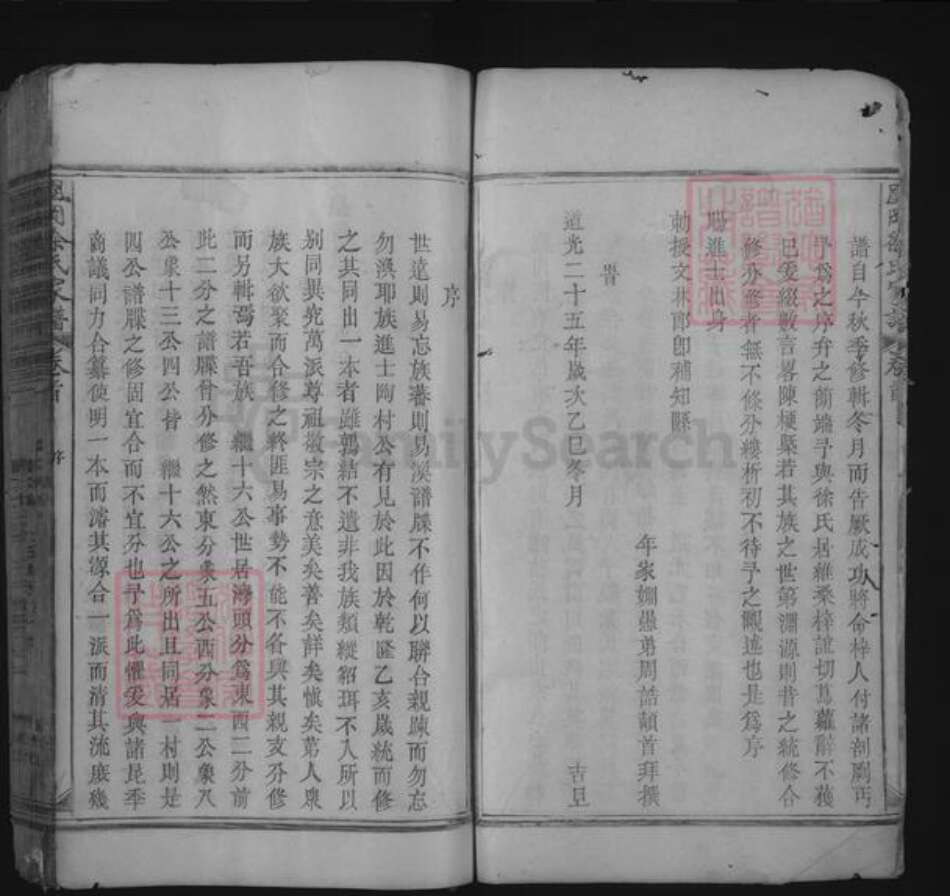 譜自今秋季修輯冬月而告厥成功將命梓人付諸剞劂丐
予爲之序弁之簡端予與徐氏居維桑梓誼切蔦蘿辭不獲
已爰綴數言畧陳梗槩若其族之世第淵源則昔之統修合
修分修者無不條分縷析初不待予之觀述也是爲序
賜進士出身
勅授文林郎卽補知縣
年家姻愚弟周誥頓首拜撰
旹
道光二十五年歲次乙巳冬月 吉旦
序
世遠則易忘族蕃則易渙譜牒不作何以聯合親疎而勿忘
勿渙耶族進士陶村公有見於此因於乾隆乙亥歲統而修
之其同出一本者雖郭結不遺非我族類縱貂珥不入所以
別同異究萬派尊祖敬宗之意美矣善矣詳矣愼矣第人衆
族大欲聚而合修之終匪易事勢不能不各與其親支分修
而另輯焉若吾族 繼十六公世居灣頭分爲東西二分前
此二分之譜牒曾分修之然東分彖五公西分彖二公彖八
公彖十三公四公皆 繼十六公之所出且同居一村則是
四公譜牒之修固宜合而不宜分也予爲此懼爰與諸昆季
商議同力合纂使明一本而濬其源合一派而清其流庶幾
徐氏家譜 卷首 序
FamilySearch